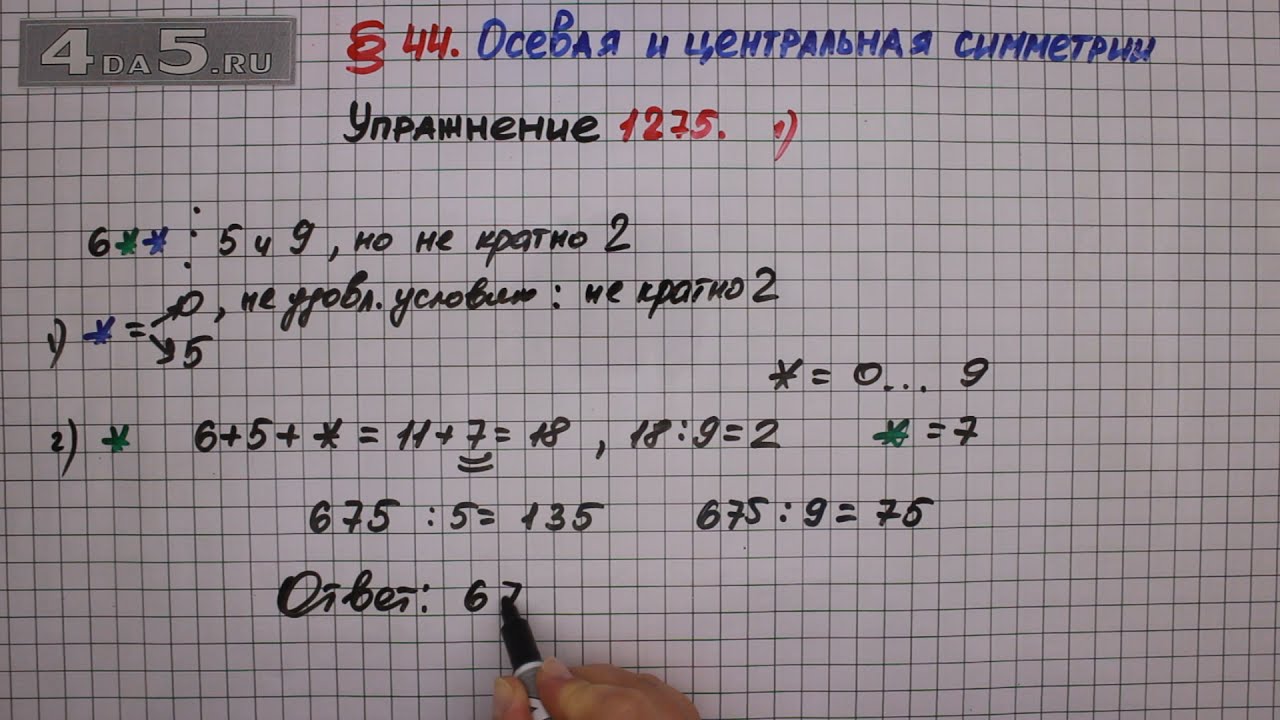 4DA5.RU
§ 44. Осевая и центральная симметрии
Упражнение 1275. 1)
6** ⋮ 5 и 9, но не кратно 2
1) * = 0, не удовл. условию: не кратно 2
5
* = 0... 9
2) * 6+5+* = 11+7= 18, 18:9=2 * =7
675 :5= 135 675:9=75
Ответ: 67